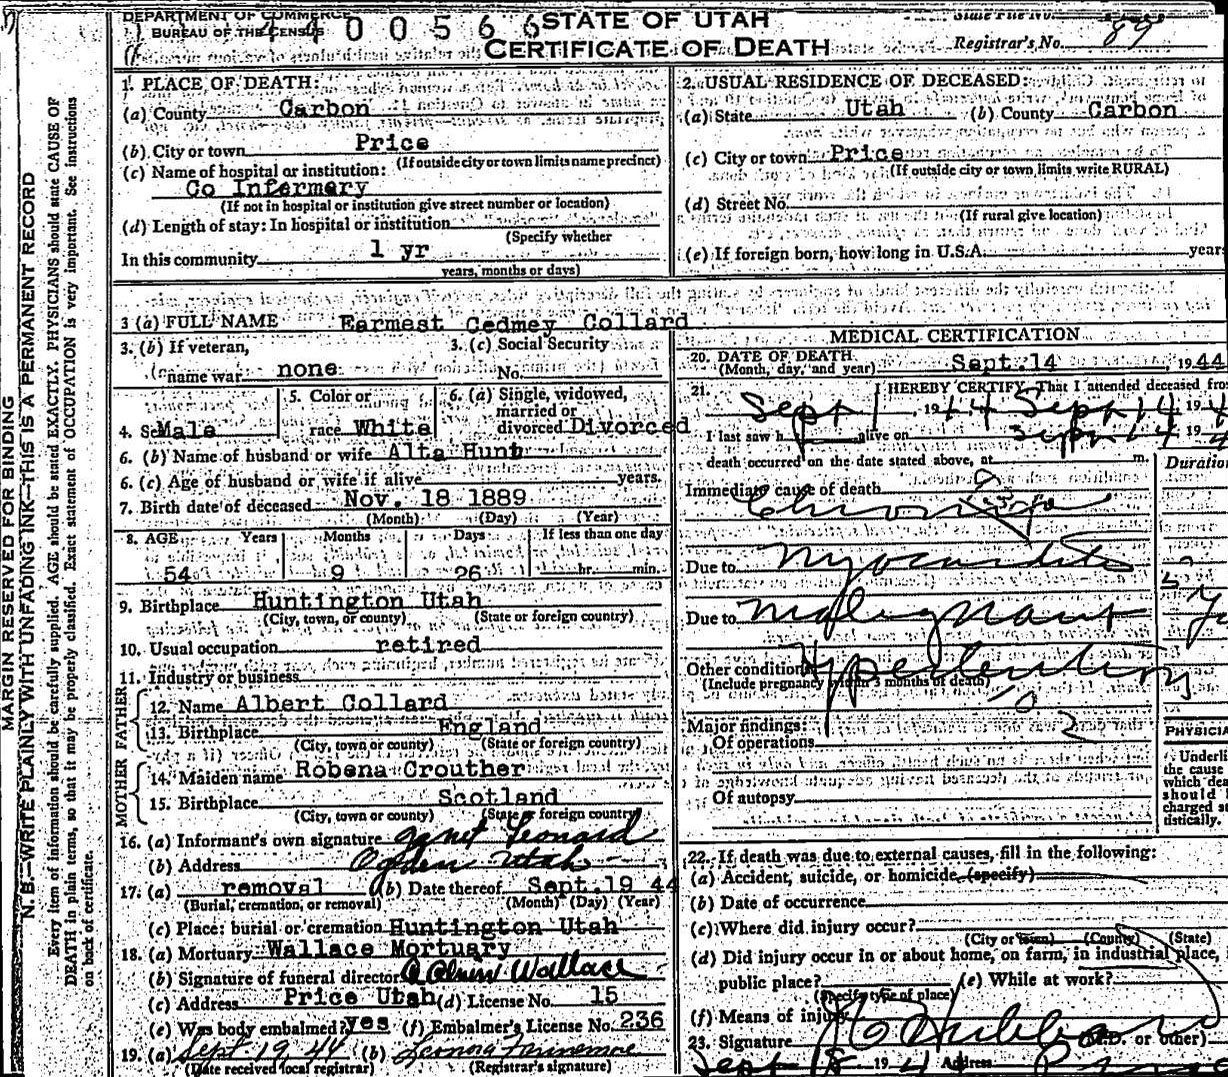 DEPARTMENT OF COMMERCE
BUREAU OF THE CENSUS
0 0 5 6 6
STATE OF UTAH
CERTIFICATE OF DEATH
State File No.
Registrar's No. 89
MARGIN RESERVED FOR BINDING
N. B.—WRITE PLAINLY WITH UNFADING INK—THIS IS A PERMANENT RECORD
Every item of information should be carefully supplied. AGE should be stated EXACTLY. PHYSICIANS should state CAUSE OF
DEATH in plain terms, so that it may be properly classified. Exact statement of OCCUPATION is very important. See instructions
on back of certificate.
1. PLACE OF DEATH:
(a) County Carbon
(b) City or town Price
(If outside city or town limits name precinct)
(c) Name of hospital or institution:
Co Infermery
(If not in hospital or institution give street number or location)
(d) Length of stay: In hospital or institution
(Specify whether
In this community 1 yr
years, months or days)
2. USUAL RESIDENCE OF DECEASED:
(a) State Utah (b) County Carbon
(c) City or town Price
(If outside city or town limits write RURAL)
(d) Street No.
(If rural give location)
(e) If foreign born, how long in U.S.A. year
3 (a) FULL NAME Earmest Cedmey Collard
3. (b) If veteran,
name war none
3. (c) Social Security
No.
4. Sex Male
5. Color or
race White
6. (a) Single, widowed,
married or
divorced Divorced
6. (b) Name of husband or wife Alta Hunt
6. (c) Age of husband or wife if alive years.
7. Birth date of deceased Nov. 18 1889
(Month) (Day) (Year)
8. AGE Years Months Days If less than one day
54 9 26 hr. min.
9. Birthplace Huntington Utah
(City, town, or county) (State or foreign country)
10. Usual occupation retired
11. Industry or business
FATHER
12. Name Albert Collard
13. Birthplace England
(City, town or county) (State or foreign country)
MOTHER
14. Maiden name Robena Crouther
15. Birthplace Scotland
(City, town or county) (State or foreign country)
16. (a) Informant's own signature Janet Leonard
(b) Address Ogden Utah
17. (a) removal (b) Date thereof Sept. 19 44
(Burial, cremation, or removal) (Month) (Day) (Year)
(c) Place: burial or cremation Huntington Utah
18. (a) Mortuary Wallace Mortuary
(b) Signature of funeral director Wallace
(c) Address Price Utah (d) License No. 15
(e) Was body embalmed? yes (f) Embalmer's License No. 236
19. (a) Sept 19, 44 (b) Leonora
(Date received local registrar) (Registrar's signature)
MEDICAL CERTIFICATION
20. DATE OF DEATH Sept. 14 1944
(Month, day, and year)
21. I HEREBY CERTIFY, That I attended deceased fro
Sept 1 19 Sept 14 19
I last saw h alive on Sept 14 19
death occurred on the date stated above, at m.
Duration
Immediate cause of death
Chronic
Due to Myocarditis
Due to Malignant
Other conditions Hypertension
(Include pregnancy within 3 months of death)
Major findings:
Of operations
Of autopsy
PHYSICIA
Underli
the cause
which dea
should b
charged st
tistically.
22. If death was due to external causes, fill in the following:
(a) Accident, suicide, or homicide (specify)
(b) Date of occurrence
(c) Where did injury occur?
(City or town) (County) (State)
(d) Did injury occur in or about home, on farm, in industrial place,
public place? (e) While at work?
(Specify type of place)
(f) Means of injury
23. Signature Hubbard (M.D. or other)
Sept 18 19 Address